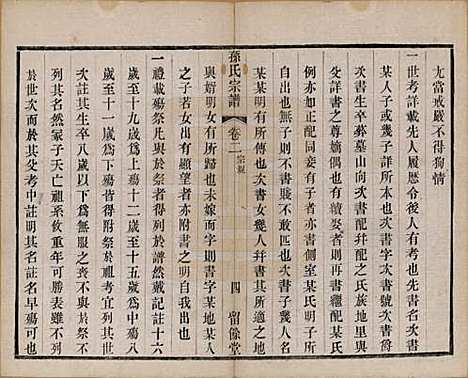 尤當戒嚴不得徇情
一世考詳載先人履歷令後人考知其名先書名次書
某人子或幾子詳所本也次書配幷配之氏族地里與
父詳書之尊嫡偶也有續娶者則再書繼配某氏
例亦如正配同妾有子者亦書側室某氏明子所
自出也無子則不書賤不敢匹也次書子幾人名
某某明有所傳也次書女幾人幷書其所適之地
孫氏宗譜
卷二
宗規
四
留餘堂
與婿明女有所歸也未嫁而字則書字某地某人
之子若女出有顯望者亦載之明自我出也
一禮載殤祭凡與於祭者得於譜然戴記註十六
歲至十九歲爲上殤十二歲至十五歲爲中殤八
歲至十一歲爲下殤皆得與於祭於祖考宜
次註其生卒八歲以下爲無服之喪不與於祭不
列其名然冢子天也祖系攸重年可勝表雖不列
於世次而於其父考中註明其名註名早殤也可